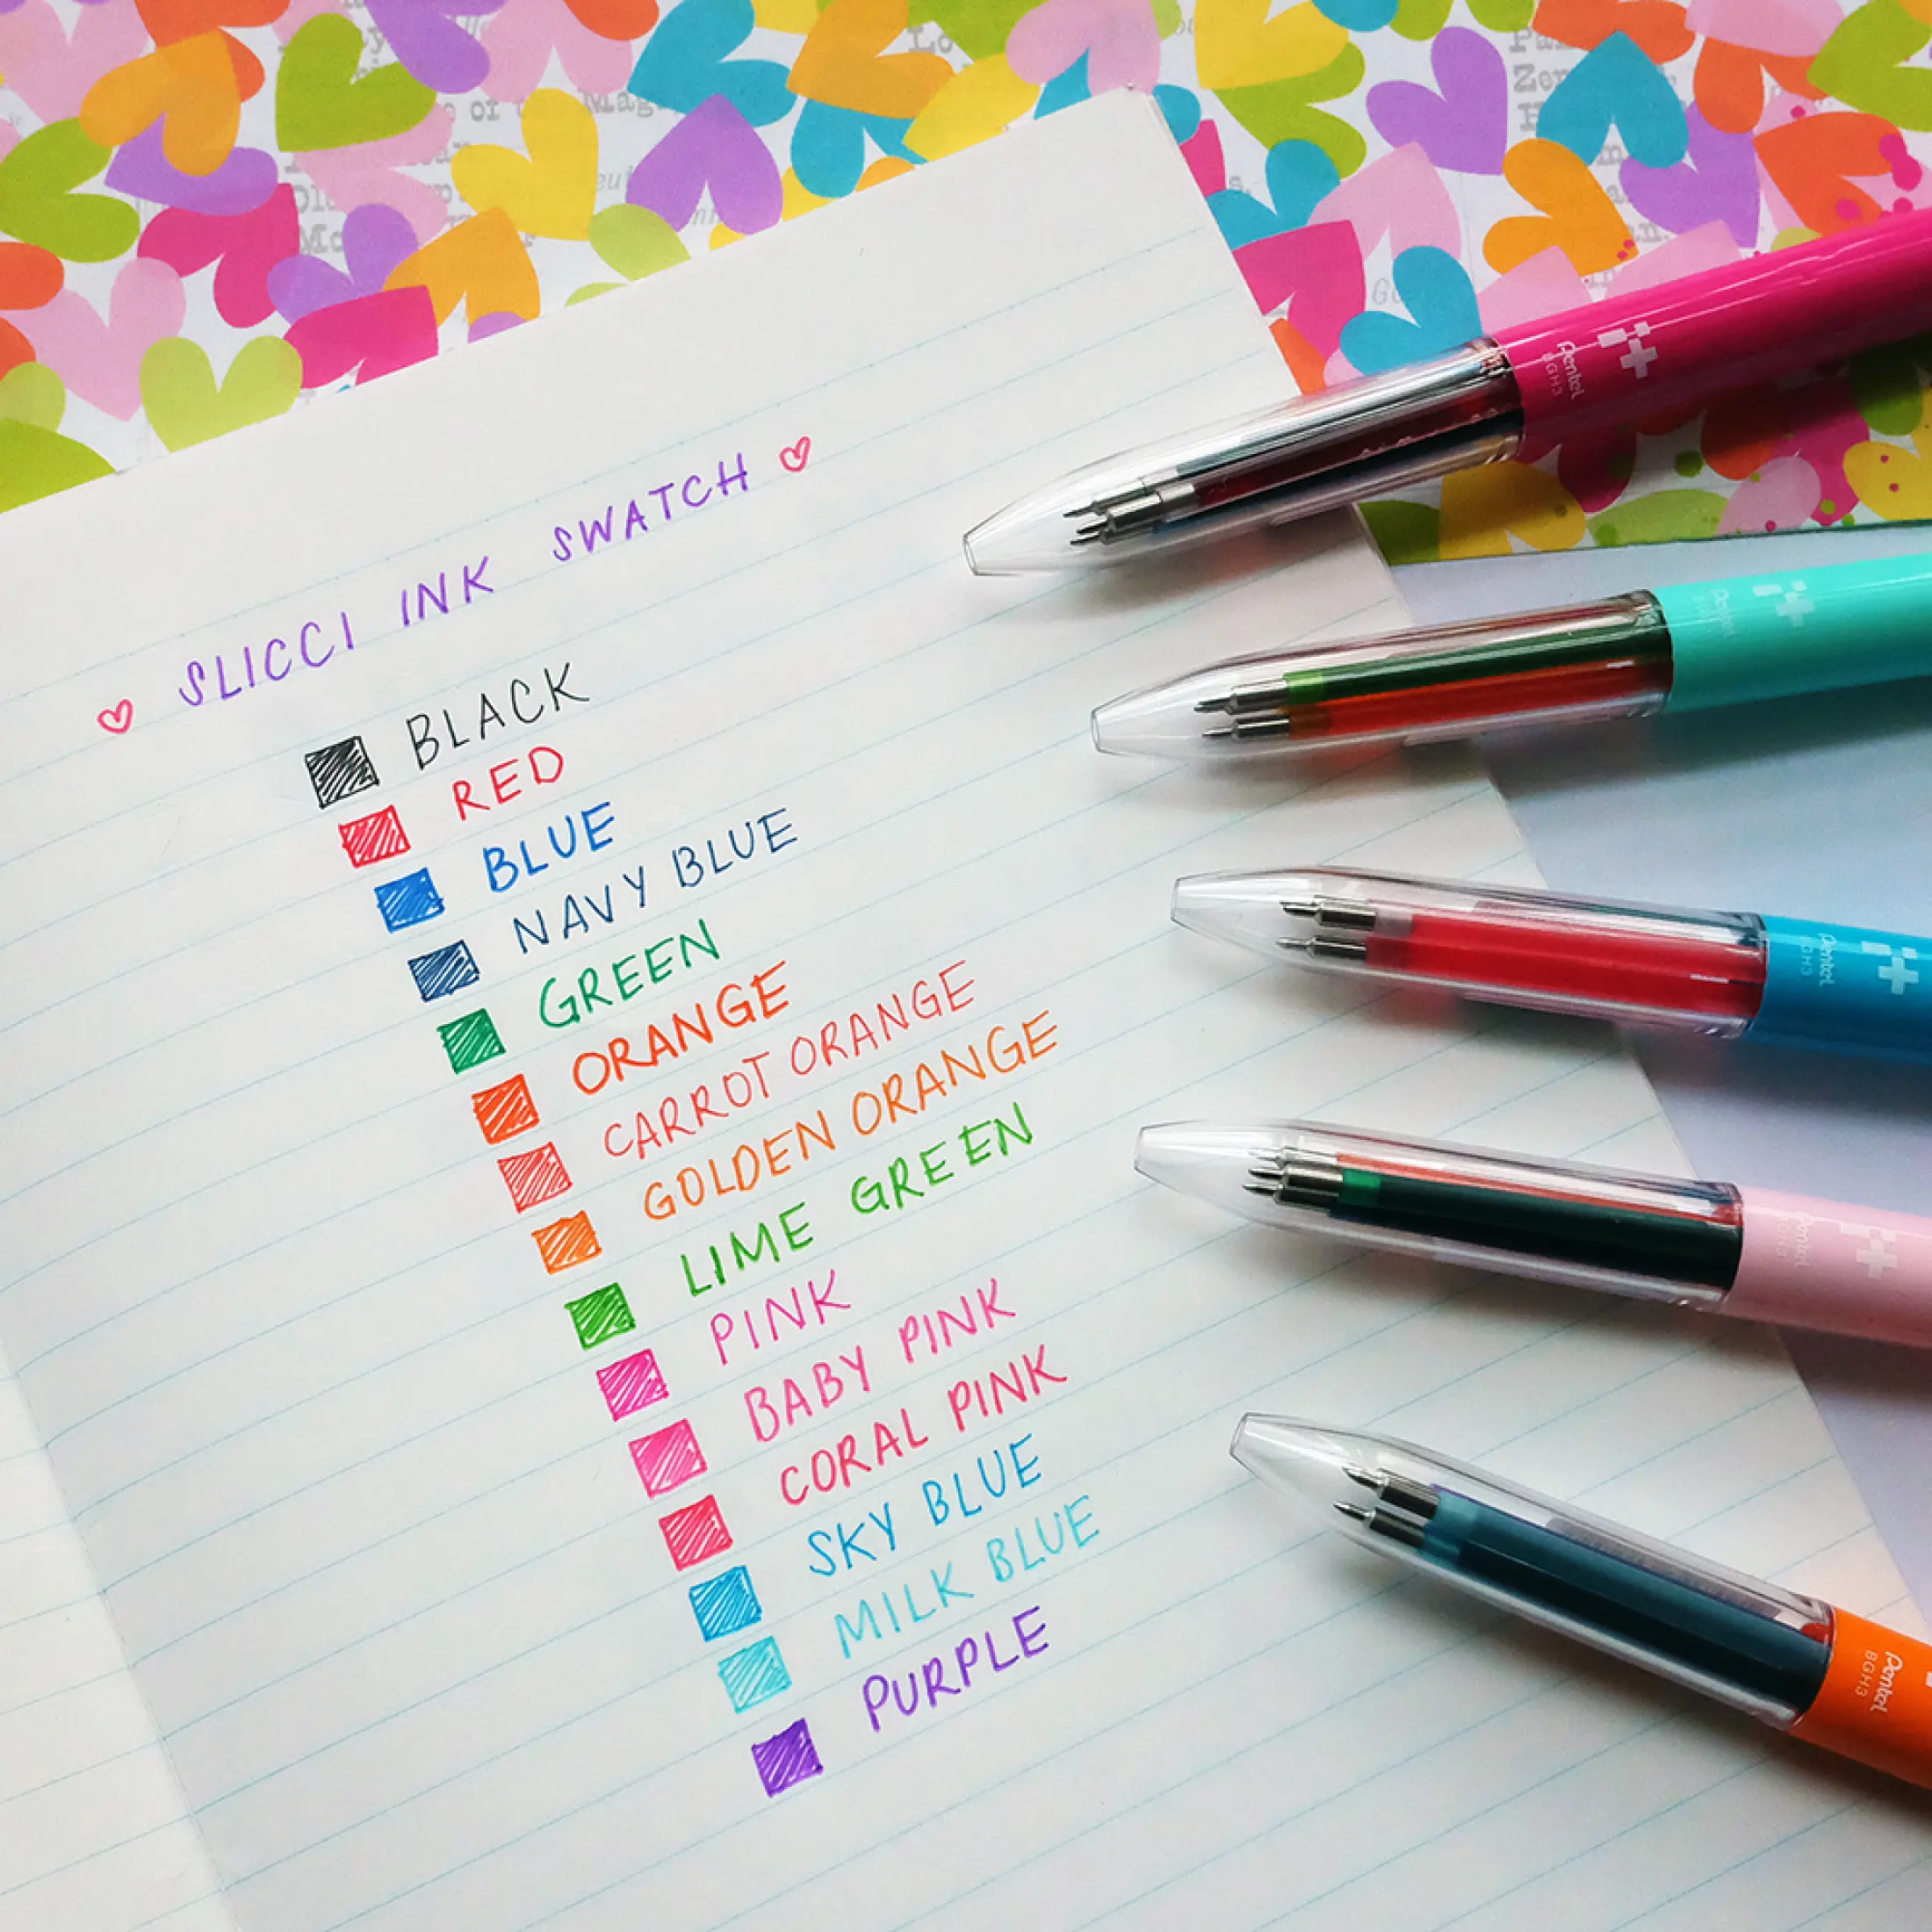 SLICCI INK SWATCH
BLACK
RED
BLUE
NAVY BLUE
GREEN
ORANGE
CARROT ORANGE
GOLDEN ORANGE
LIME GREEN
PINK
BABY PINK
CORAL PINK
SKY BLUE
MILK BLUE
PURPLE
Pentel
BGH3
Pentel
Pentel
BGH3
Pentel
BGH3
Pentel
BGH3